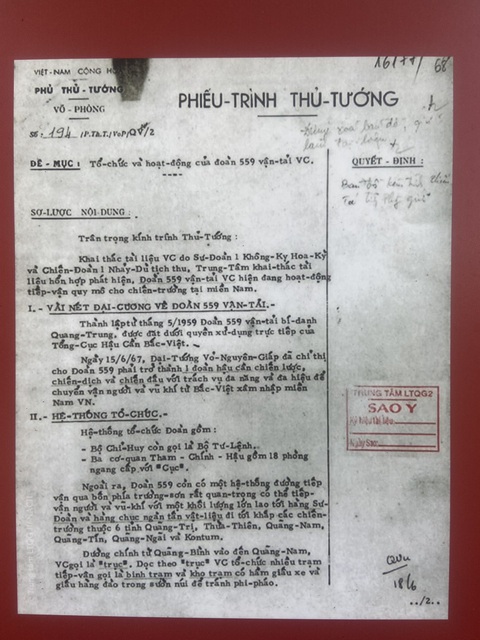 VIỆT-NAM CỘNG H
PHỦ THỦ-TƯỚNG
VÕ-PHÒNG
Số: 194 /P.Th.T./VoP/QS/2
1677/ 68
PHIẾU-TRÌNH THỦ-TƯỚNG
ĐỀ-MỤC: Tổ-chức và hoạt-động của đoàn 559 vận-tải VC.
QUYẾT-ĐỊNH:
SƠ-LƯỢC NỘI-DUNG:
Trân trọng kính trình Thủ-Tướng:
Khai thác tài liệu VC do Sư-Đoàn 1 Không-Kỵ Hoa-Kỳ
và Chiến-Đoàn 1 Nhảy-Dù tịch thu, Trung-Tâm khai-thác tài
liệu hỗn hợp phát hiện, Đoàn 559 vận-tải VC hiện đang hoạt-động
tiếp-vận quy mô cho chiến-trường tại miền Nam.
I.- VÀI NÉT ĐẠI-CƯƠNG VỀ ĐOÀN 559 VẬN-TẢI.-
Thành lập từ tháng 5/1959 Đoàn 559 vận-tải bí-danh
Quang-Trung, được đặt dưới quyền xử-dụng trực tiếp của
Tổng-Cục Hậu Cần Bắc-Việt.
Ngày 15/6/67, Đại-Tướng Võ-Nguyên-Giáp đã chỉ thị
cho Đoàn 559 phải trở thành 1 đoàn hậu cần chiến lược,
chiến-dịch và chiến đấu với trách vụ đa năng và đa hiệu để
chuyển vận người và vũ khí từ Bắc-Việt xâm nhập miền
Nam VN.
II.- HỆ-THỐNG TỔ-CHỨC.-
Hệ-thống tổ-chức Đoàn gồm:
- Bộ Chỉ-Huy còn gọi là Bộ Tư-Lệnh.
- Ba cơ-quan Tham - Chính - Hậu gồm 18 phòng
ngang cấp với "Cục".
Ngoài ra, Đoàn 559 còn có một hệ-thống đường tiếp
vận qua bốn phía trường-sơn rất quan-trọng có thể tiếp-
vận người và vũ-khí với một khối lượng lớn lao tới hàng Sư-
Đoàn và hàng chục ngàn tấn vật-liệu đi tới khắp các chiến-
trường thuộc 6 tỉnh Quảng-Trị, Thừa-Thiên, Quảng-Nam,
Quảng-Tín, Quảng-Ngãi và Kontum.
Đường chính từ Quảng-Bình vào đến Quảng-Nam,
VC gọi là "trục". Dọc theo "trục" VC tổ-chức nhiều trạm
tiếp-vận gọi là binh trạm và kho trạm có hầm giấu xe và
giấu hàng đào trong sườn núi để tránh phi-pháo.
TRUNG TÂM LTQG2
SAO Y
Ký hiệu tài liệu
Ngày Sao
QVu
18/6
../2..